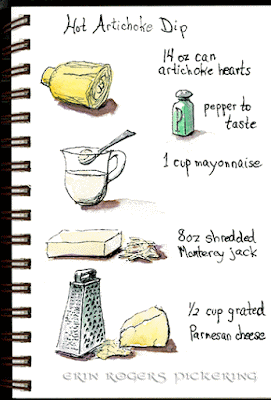 Hot Artichoke Dip
14 oz can
artichoke hearts
P
pepper to
taste
1 cup mayonnaise
8oz shredded
Monterey jack
1/2 cup grated
Parmesan cheese
ERIN ROGERS PICKERING